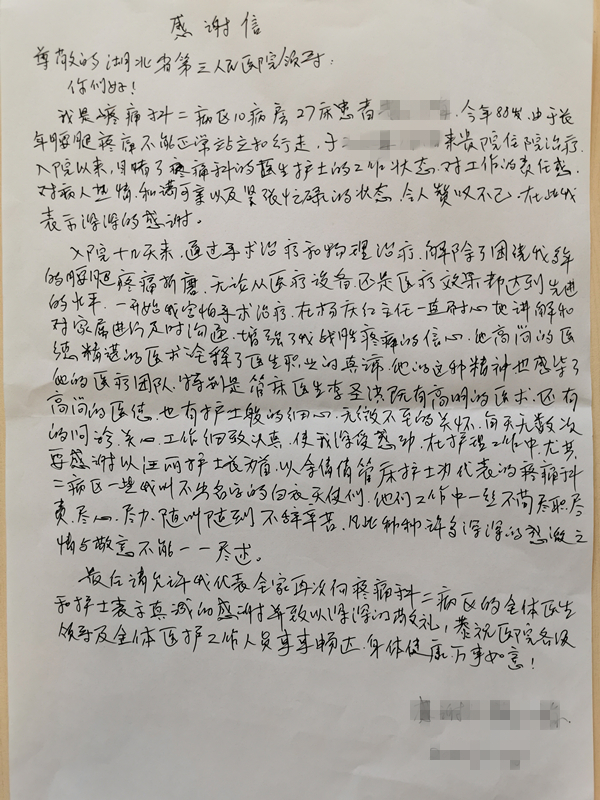 感谢信
尊敬的湖北省第三人民医院领导:
你们好!
我是疼痛科二病区10病房27床患者 今年88岁,由于长
年腰腿疼痛不能正常站立和行走,于 来贵院住院治疗.
入院以来,目睹了疼痛科的医生护士的工作状态.对工作的责任感.
对病人热情.和蔼可亲以及紧张忙碌的状态.令人赞叹不已.在此我
表示深深的感谢。
入院十几天来.通过手术治疗和物理治疗.解除了困绕我多年
的腰腿疼痛折磨.无论从医疗设备还是医疗效果都达到先进
的水平.一开始我害怕手术治疗.在杨庆仁主任一直耐心地讲解和
对家属进行及时沟通.增强了我战胜疼痛的信心.他高尚的医
德精湛的医术诠释了医生职业的真谛.他的这种精神也感染了
他的医疗团队.特别是管床医生李圣洪既有高明的医术.还有
高尚的医德.也有护士般的细心.无微不至的关怀.每天无数次
的问诊.关心.工作细致认真.使我深受感动.在护理工作中.尤其
要感谢以汪丽护士长为首.以余倩倩管床护士为代表的疼痛科
二病区一些我叫不出名字的白衣天使们.他们工作中一丝不苟尽职.尽
责.尽心.尽力.随叫随到不辞辛苦.凡此种种许多深深的感激之
情与敬意不能一一尽述。
最后请允许我代表全家再次向疼痛科二病区的全体医生
和护士表示真诚的感谢并致以深深的敬礼,恭祝医院各级
领导及全体医护工作人员事事畅达.身体健康.万事如意!